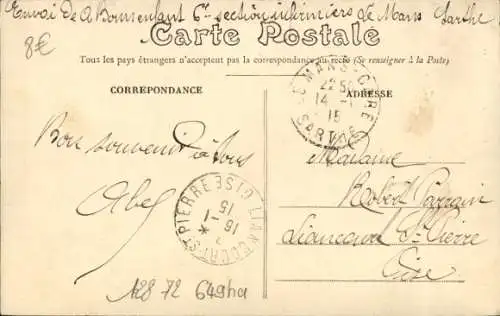 Envoi de A Bonsenfant 6e section infirmiers Le Mans Sarthe
8€
Carte Postale
Tous les pays étrangers n'acceptent pas la correspondance au recto (Se renseigner à la Poste)
CORREPONDANCE
ADRESSE
LE MANS-GARE
22 50
14 -1
15
SARTHE
Bon souvenir à tous
Abel
LIANCOURT-ST-PIERRE OISE
16 -1
15
*
Madame
Robert Parrain
Liancourt St Pierre
Oise
128 72 649ha